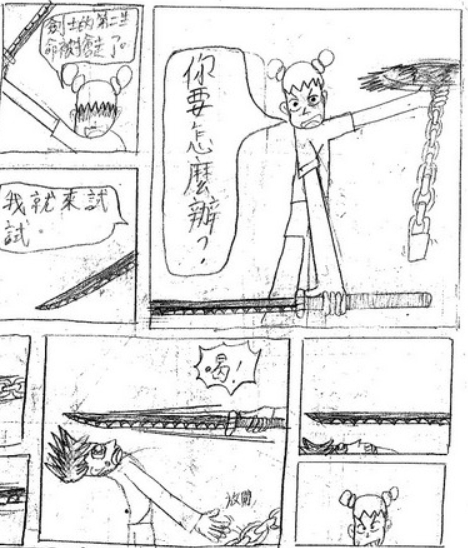 劍士的第二生
命被搶走了。
你要怎麼辦?
我就來試
試。
喝!
放開